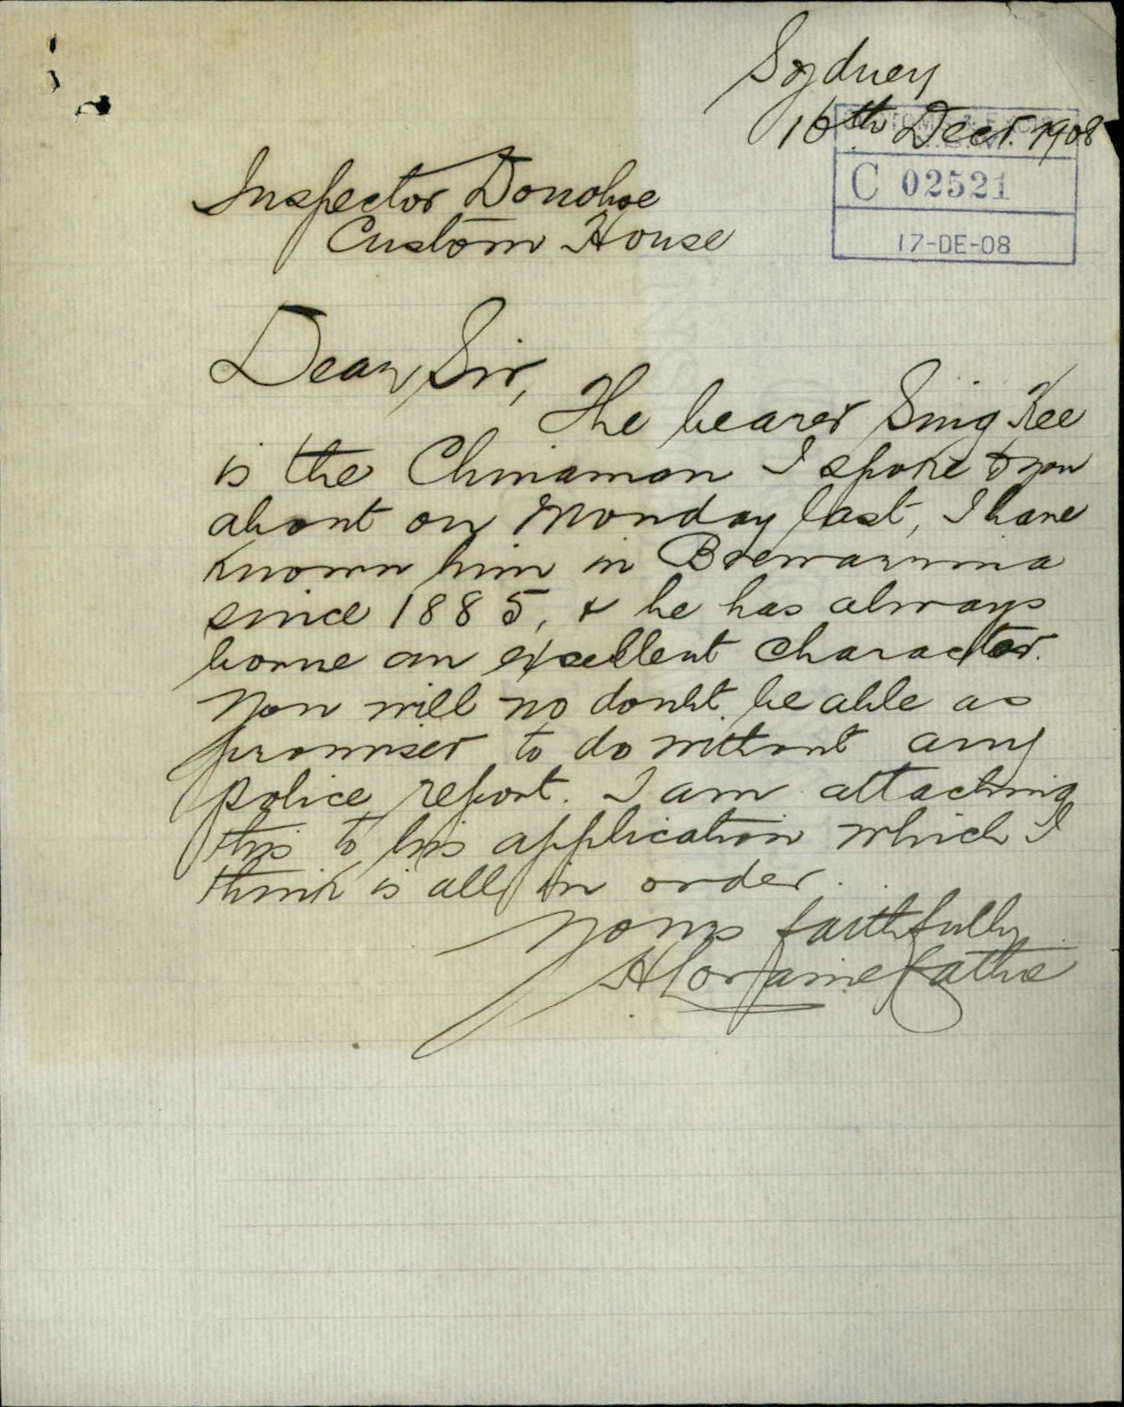 Sydney
16th Decr. 1908
C 02521
17-DE-08
Inspector Donohoe
Custom House
Dear Sir,
The bearer Sing Kee
is the Chinaman I spoke to you
about on Monday last, I have
known him in Brewarrina
since 1885, & he has always
borne an excellent character.
You will no doubt be able as
promised to do without any
police report. I am attaching
this to his application which I
think is all in order.
Yours faithfully
H Lorraine Cathie